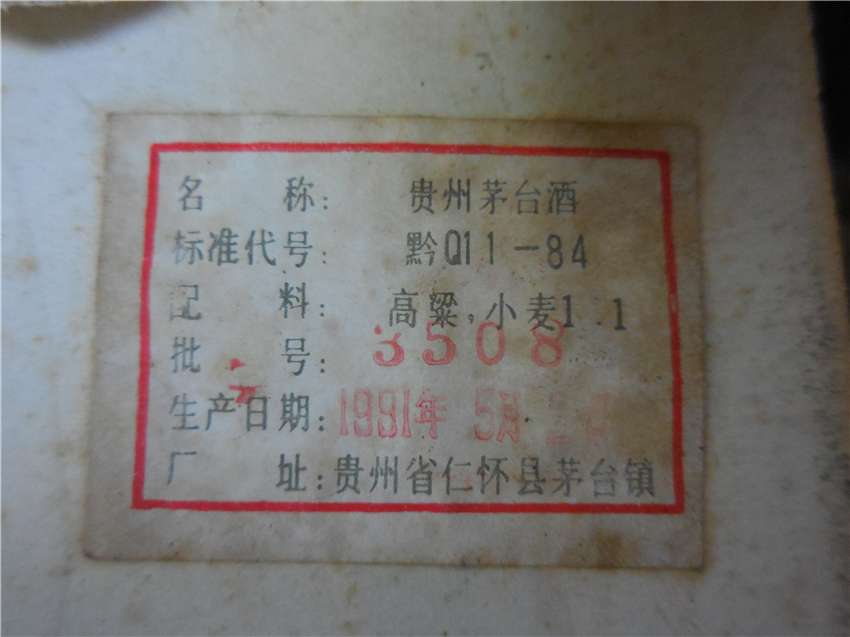 名 称： 贵州茅台酒
标准代号： 黔Q11-84
配 料： 高粱，小麦1.1
批 号： 3508
生产日期： 1991年 5月
厂 址：贵州省仁怀县茅台镇